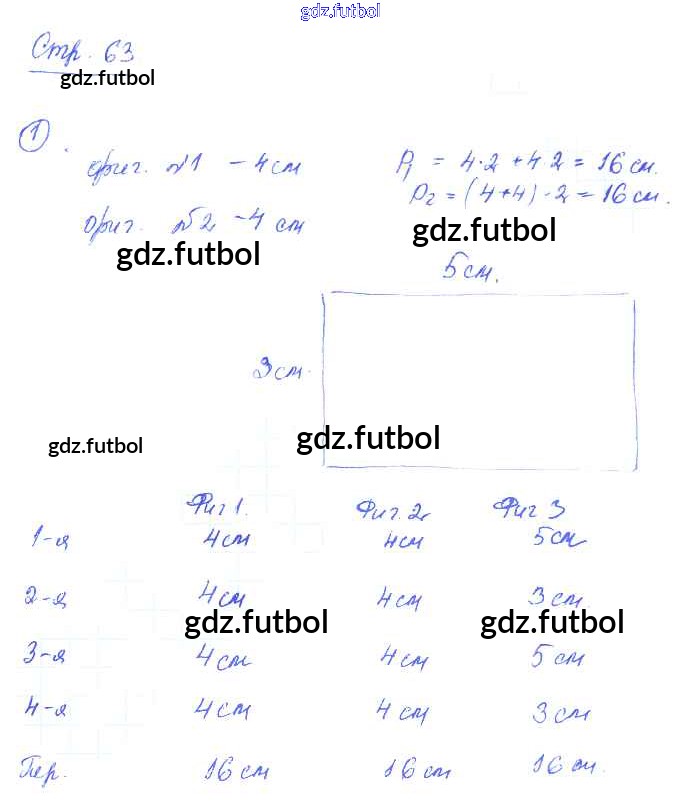 gdz.futbol
Стр. 63
gdz.futbol
1.
фиг. №1 - 4 см P₁ = 4·2 + 4·2 = 16 см.
фиг. №2 - 4 см P₂ = (4+4)·2 = 16 см.
gdz.futbol gdz.futbol
5 см.
3 см.
gdz.futbol gdz.futbol
Фиг 1. Фиг. 2 Фиг 3
1-я 4 см 4 см 5 см
2-я 4 см 4 см 3 см
gdz.futbol gdz.futbol
3-я 4 см 4 см 5 см
4-я 4 см 4 см 3 см
Пер. 16 см 16 см 16 см.